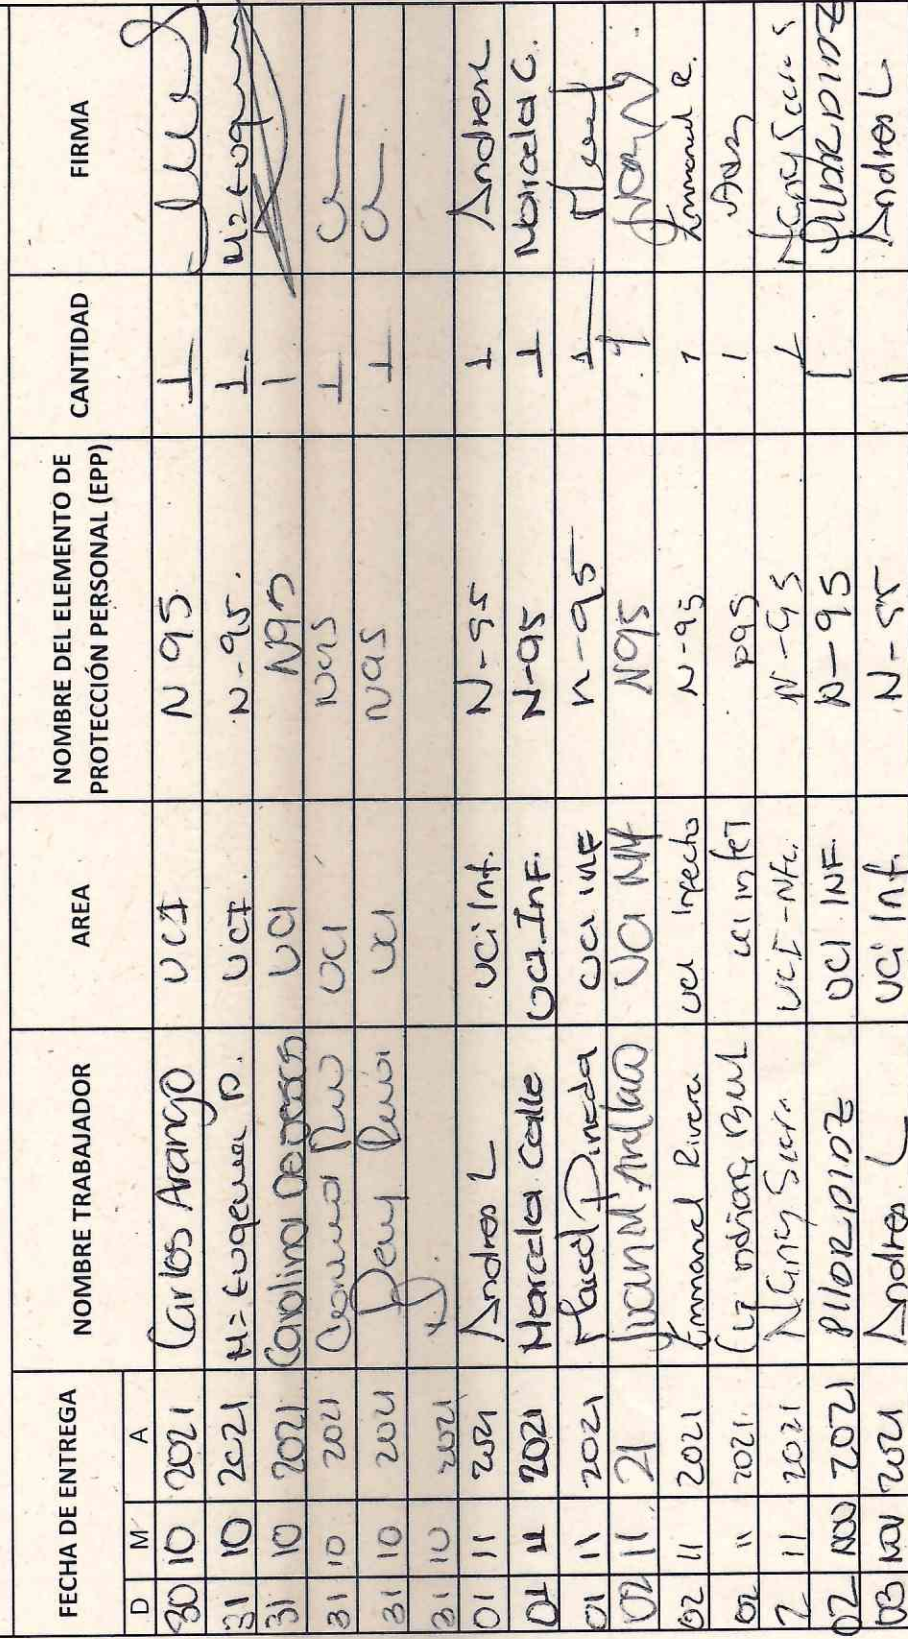 FECHA DE ENTREGA NOMBRE TRABAJADOR AREA NOMBRE DEL ELEMENTO DE PROTECCIÓN PERSONAL (EPP) CANTIDAD FIRMA
D M A
30 10 2021 Carlos Arango UCI N 95 1
31 10 2021 Mª Eugenia P. UCI. N-95. 1.
31 10 2021 Carolina UCI N95 1
31 10 2021 UCI N95 1
31 10 2021 UCI N95 1
31 10 2021
01 11 2021 Andres L UCI Inf. N-95 1 Andres L
01 11 2021 Marcela Calle UCI.InF. N-95 1 Marcela C.
01 11 2021 Pineda UCI INF n-95 1
02 11 21 Juan M. UCI N95 1
02 11 2021 Emmanuel Rivera UCI Infecto N-95 1 Emmanuel R.
02 11 2021 UCI Infet 1
2 11 2021 Nancy Sierra UCI-Nfc. N-95 1 Nancy
02 NOV 2021 PILAR DIAZ UCI INF. N-95 1 PILAR DIAZ
03 NOV 2021 Andres L UCI Inf. N-95 1 Andres L